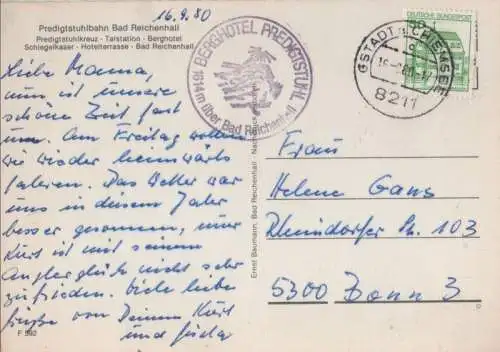 16.9.80
Predigtstuhlbahn Bad Reichenhall
Predigtstuhlkreuz - Talstation - Berghotel
Schlegelkaser - Hotelterrasse - Bad Reichenhall
BERGHOTEL PREDIGTSTUHL
1614 m über Bad Reichenhall
DEUTSCHE BUNDESPOST
GSTADT A CHIEMSEE
8211
Liebe Mama,
nun ist unsere
schöne Zeit fast
um. Am Freitag wollen
wir wieder heimwärts
fahren. Das Wetter war
uns in diesem Jahr
besser gesonnen, nur
Kurt ist mit seinem
Anglerglück nicht sehr
zufrieden. Viele liebe
Grüße von Deinem Kurt
und
F 592
Ernst Baumann, Bad Reichenhall
Frau
Helene Gans
Rheindorfer Str. 103
5300 Bonn 3